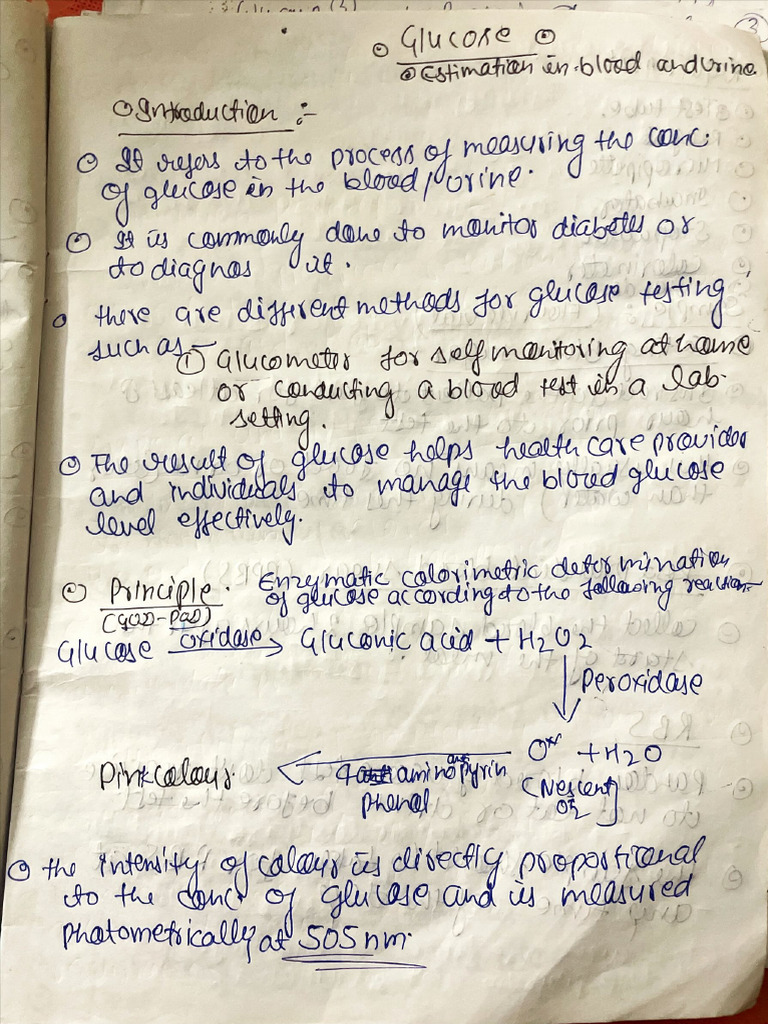 3
Glucose
Estimation in blood and urine
Introduction :-
It refers to the process of measuring the conc.
of glucose in the blood/urine.
It is commonly done to monitor diabetes or
to diagnos it.
there are different methods for glucose testing
such as -
① Glucometer for self monitoring at home
or conducting a blood test in a lab.
setting.
The result of glucose helps health care provider
and individuals to manage the blood glucose
level effectively.
Principle. Enzymatic calorimetric determination
of glucose according to the following reaction-
(GOD-POD)
Glucose oxidase → Gluconic acid + H2O2
↓ Peroxidase
Pink colour. ← 4 amino antipyrin O** + H2O
phenol (Nescent O2]
the intensity of colour is directly proportional
to the conc. of glucose and is measured
photometrically at 505 nm.